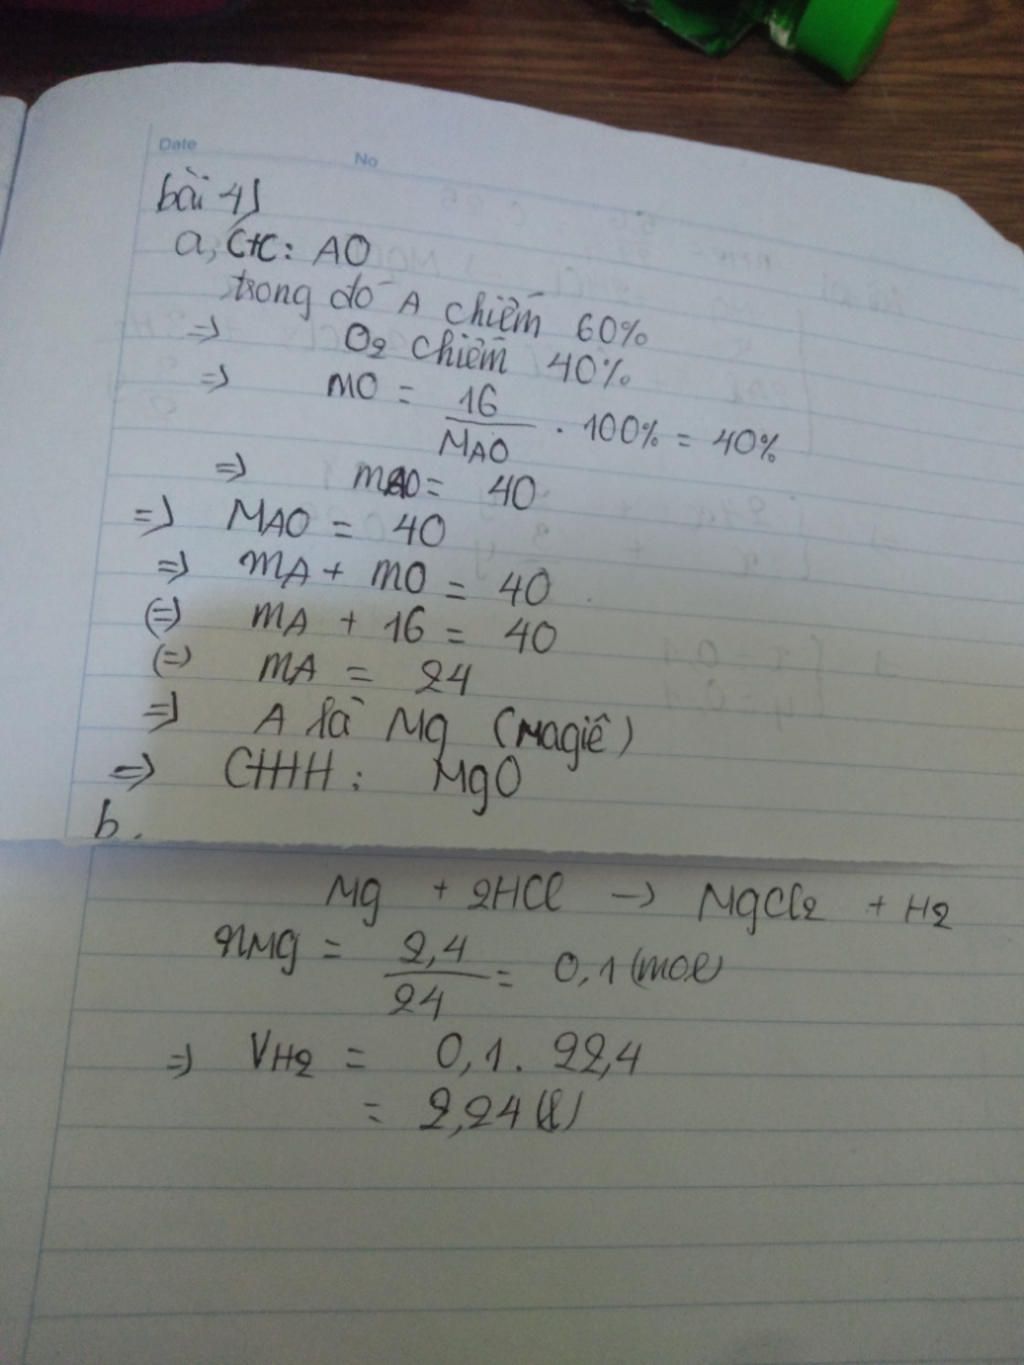 Date
No
bài 4)
a, CTC: AO
trong đó A chiếm 60%
=> O2 chiếm 40%
=> mO = 16 / MAO . 100% = 40%
=> mAO = 40
=> MAO = 40
=> mA + mO = 40
(=) mA + 16 = 40
(=) mA = 24
=> A là Mg (Magiê)
=> CTHH: MgO
b.
Mg + 2HCl -> MgCl2 + H2
nMg = 2,4 / 24 = 0,1 (mol)
=> VH2 = 0,1 . 22,4
= 2,24 (l)